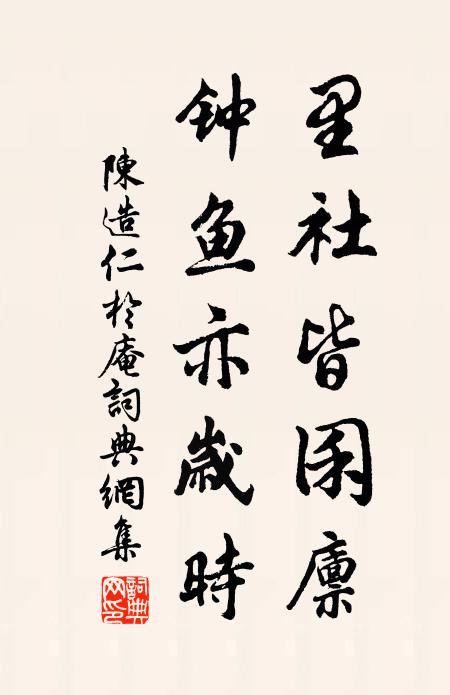 里社皆囷廪
钟鱼亦歲時
陳造仁於庵詞典網集
詞典
网印